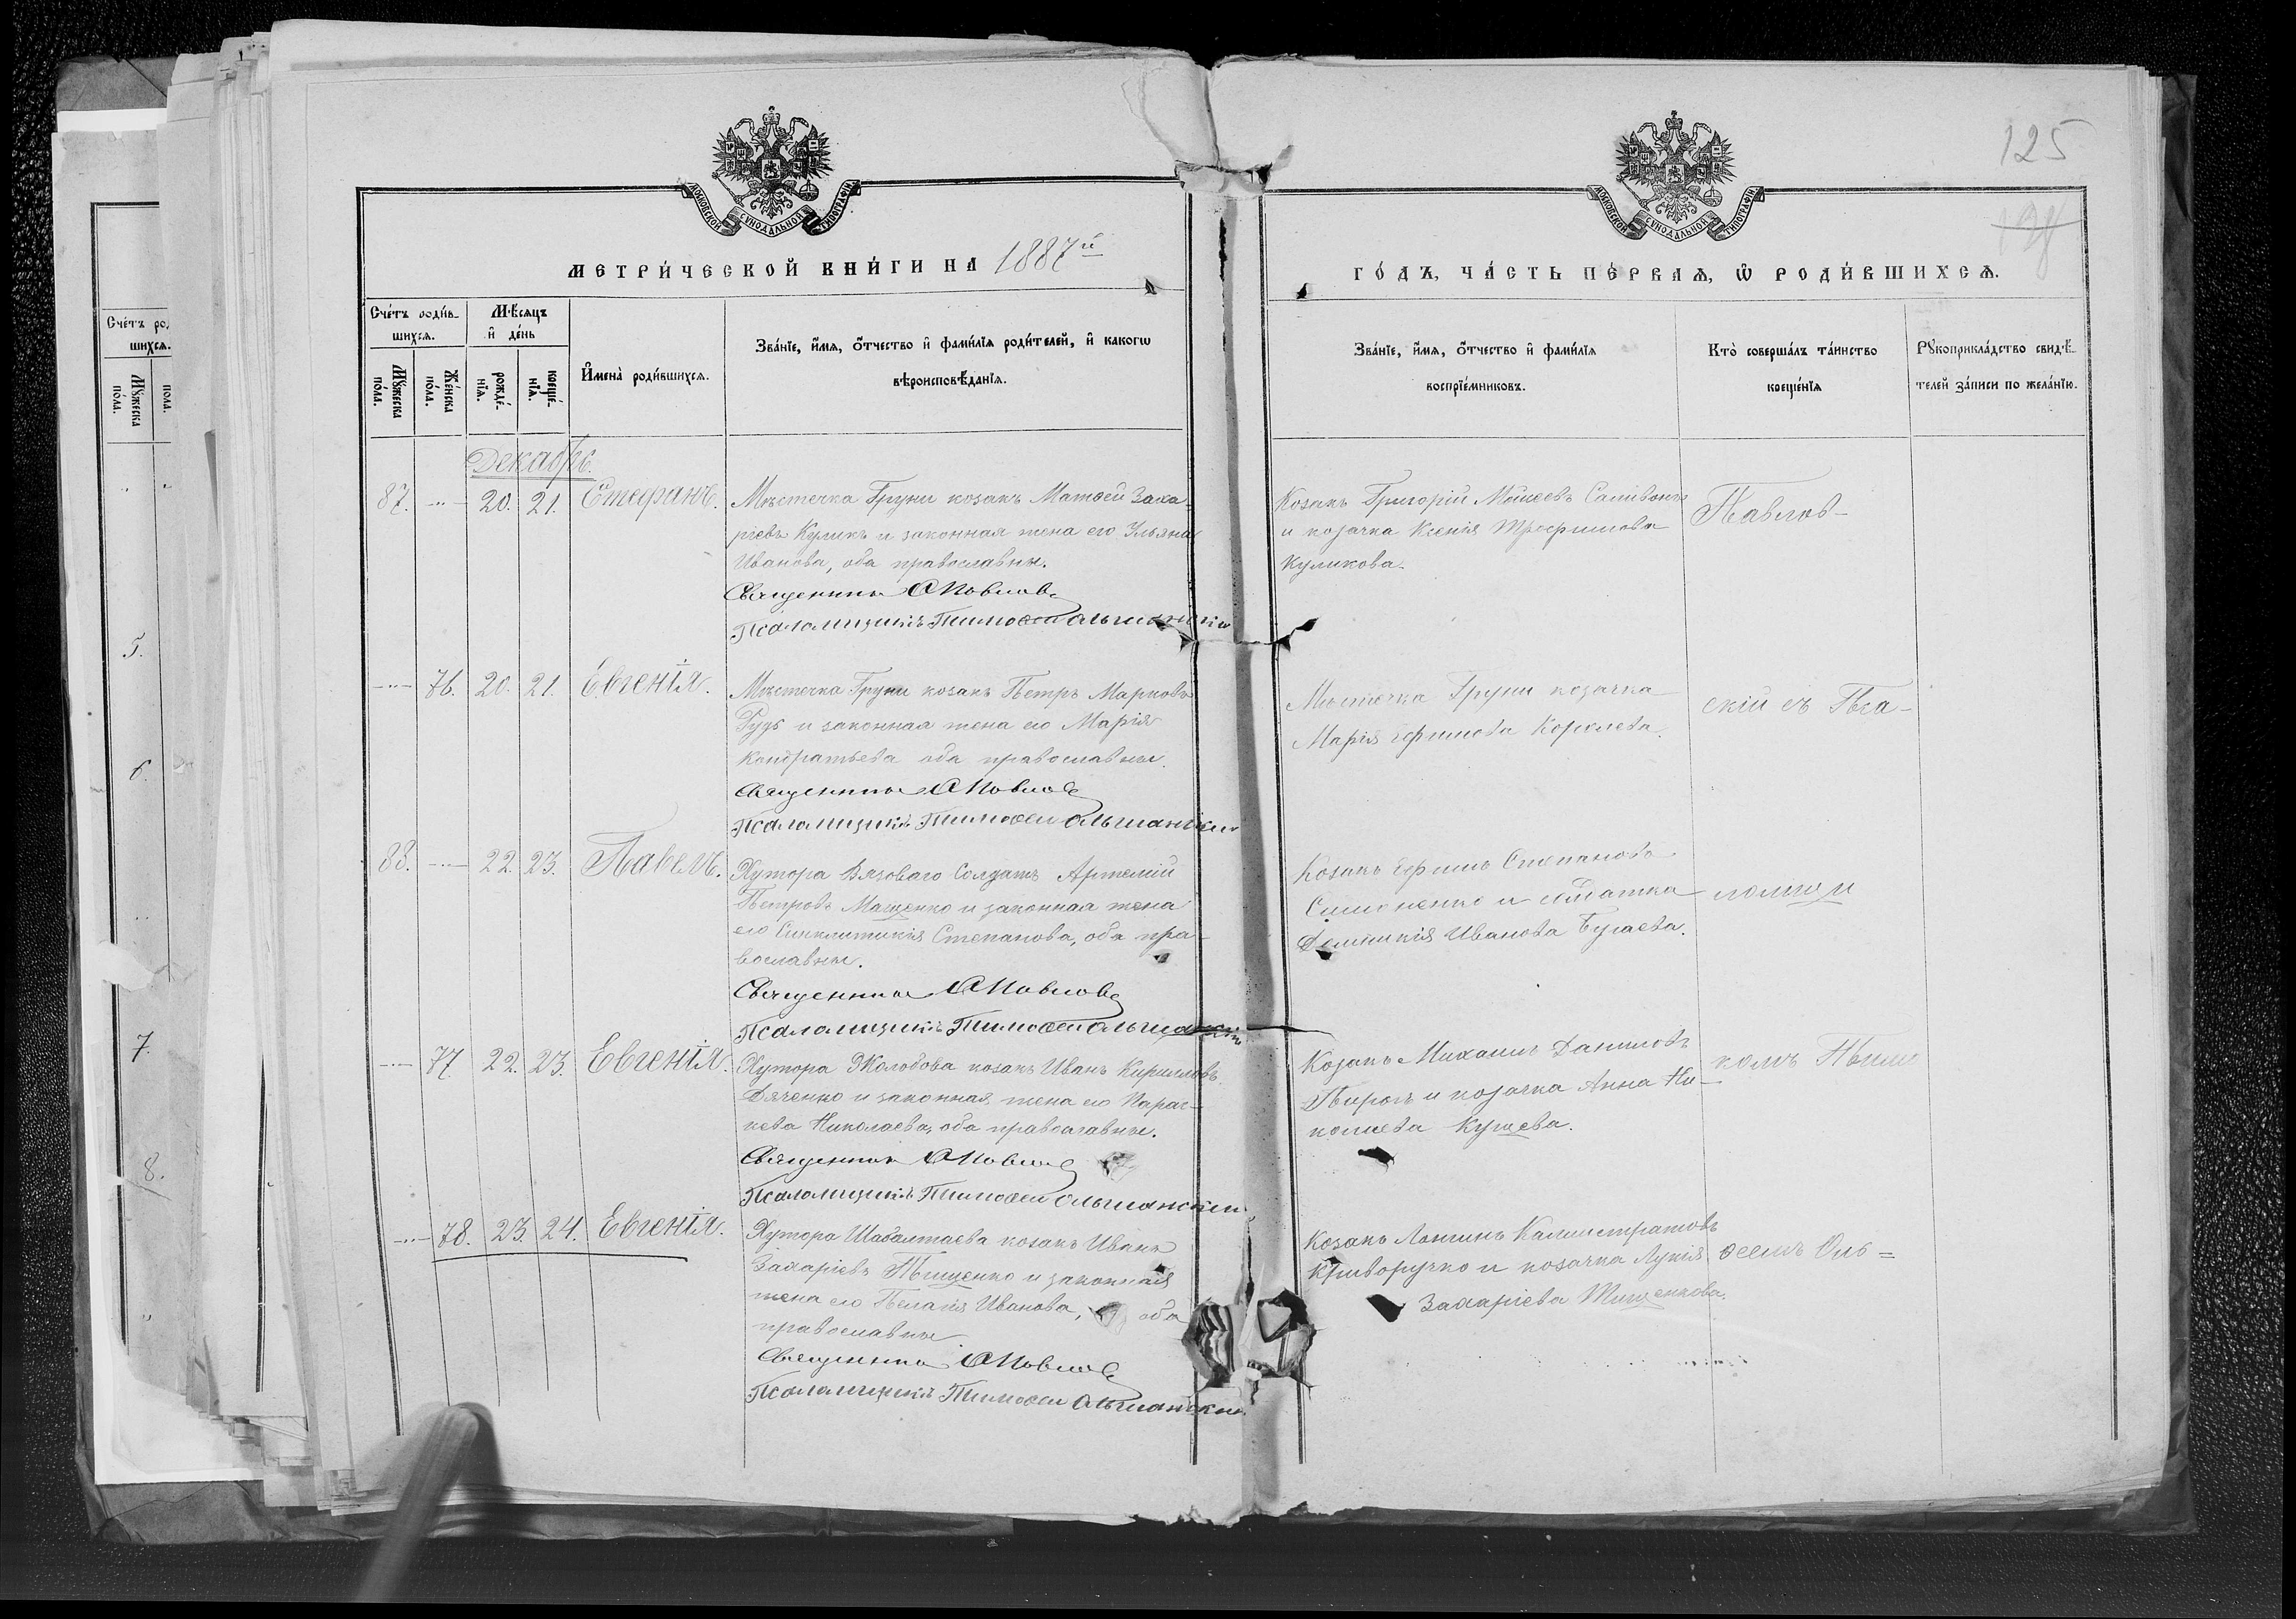 125
МОСКОВСКОЙ СѴНОДАЛЬНОЙ ТИПОГРАФІИ
МОСКОВСКОЙ СѴНОДАЛЬНОЙ ТИПОГРАФІИ
МЕТРИ́ЧЕСКОЙ КНИ́ГИ НА 1887й
ГО́ДЪ, ЧА́СТЬ ПЕ́РВАѦ, Ѡ РОДИ́ВШИХСѦ.
Сче́тъ роди́в-
шихсѧ.
Му́жеска по́ла.
Же́нска по́ла.
Мѣ́сяцъ
и҆ де́нь
рожде́-нїѧ.
креще́-нїѧ.
И҆мена̀ роди́вшихсѧ.
Зва́нїе, и҆́мѧ, ѻ҆́тчество и҆ фами́лїѧ роди́телей, и҆ какогѡ
вѣроисповѣ́данїѧ.
Зва́нїе, и҆́мѧ, ѻ҆́тчество и҆ фами́лїѧ
воспрїе́мниковъ.
Кто̀ соверша́лъ та́инство
креще́нїѧ
Рꙋкоприкла́дство свидѣ́-
телей за́писи по жела́нїю.
Сче́тъ ро
шихсѧ.
Му́жеска по́ла.
пола.
5.
6.
7.
8.
Декабрь.
87. 20. 21. Стефанъ.
Мѣстечка Груни козакъ Матѳей Заха-
ріевъ Куликъ и законная жена его Ульяна
Иванова, оба православны.
Священникъ Павлов
Псаломщикъ Тимофей Ольшанскій
Козакъ Григорій Моисеевъ
и козачка Ксенія Трофимова
Куликова.
Павлов-
76. 20. 21. Евгенія.
Мѣстечка Груни козакъ Петръ Марковъ
Рудь и законная жена его Марія
Кондратьева оба православны.
Священникъ Павлов
Псаломщикъ Тимофей Ольшанскій
Мѣстечка Груни козачка
Марія Ефимова Королева.
скій съ Пса-
88. 22. 23. Павелъ.
Хутора Вязоваго Солдатъ Артемій
Петровъ Мащенко и законная жена
его Синклитикія Степанова, оба пра-
вославны.
Священникъ Павлов
Псаломщикъ Тимофей Ольшанскій
Козакъ Ефимъ Степановъ
Симоненко и солдатка
Домникія Иванова Бугаева.
ломщи
77. 22. 23. Евгенія.
Хутора Жолобова козакъ Иванъ Кирилловъ
Дяченко и законная жена его Парас-
кева Николаева, оба православны.
Священникъ Павлов
Псаломщикъ Тимофей Ольшанскій
Козакъ Михаилъ Даниловъ
Пирогъ и козачка Анна Ни-
колаева Куцева.
комъ Тим
78. 23. 24. Евгенія.
Хутора Шабалтаева козакъ Иванъ
Захаріевъ Тищенко и законная
жена его Пелагія Иванова, оба
православны
Священникъ Павлов
Псаломщикъ Тимофей Ольшанскій
Козакъ Логинъ Каллистратовъ
Криворучко и козачка Лукія
Захаріева Тищенкова.
ѳеемъ Оль=